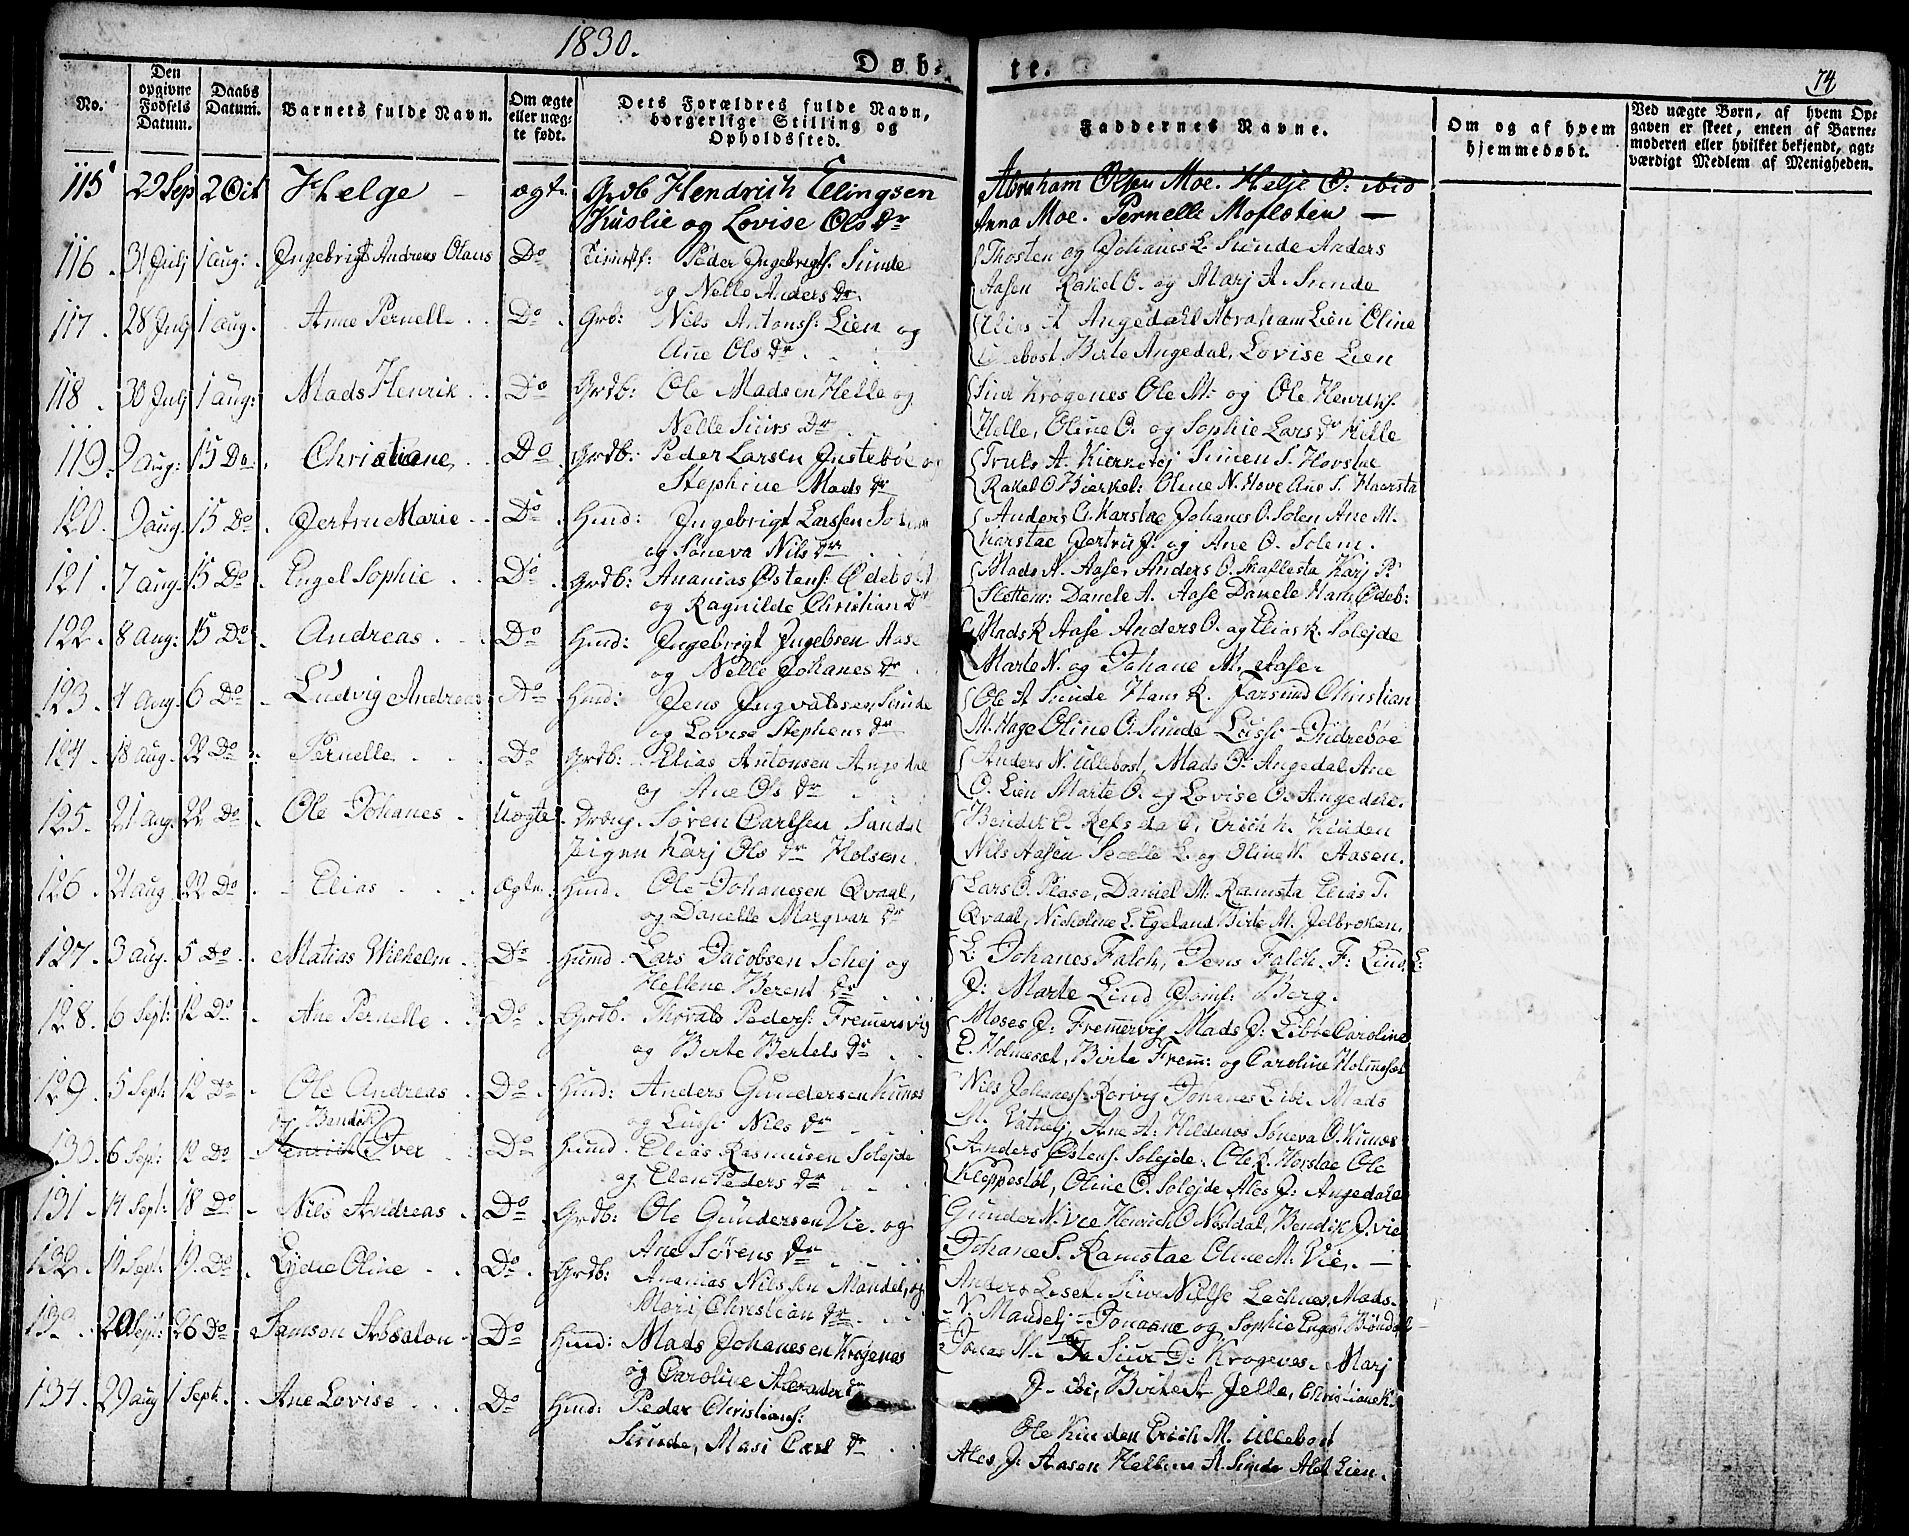 1830.
Døb- te. 74
No.
Den opgivne Fødsels Datum.
Daabs Datum.
Barnets fulde Navn.
Om ægte eller uægte født.
Dets Forældres fulde Navn, borgerlige Stilling og Opholdssted.
Faddernes Navne.
Om og af hvem hjemmedøbt.
Ved uægte Børn, af hvem Opgaven er skeet, enten af Barnemoderen eller hvilket bekjendt, agtværdigt Medlem af Menigheden.
115 29 Sep 2 Oct Helge – ægt. Grdb Hendrich Ellingsen Abraham Olsen Moe. Helje O: ibid
Huslie og Lovise Ols Dr Anna Moe. Pernelle Moflæten —
116. 31 July 1 aug: Ingebrigt Andreas Olaus Do Peder Ingebrigts. Sunde Thosten og Johanes L. Sunde Anders
og Nelle Anders Dr. Aasen Rakel O. og Marj A. Sunde
117. 28 July 1 aug. Anne Pernelle Do Grd: Nils Antons: Lien og Elias A Angedahl Abraham Lien Oline
Ane Ols Dr Birte Angedal, Lovise Lien
118. 30 July 1 aug: Mads Henrik Do Grdb: Ole Madsen Helle og Siur Krogenes Ole M: og Ole Henriks.
Nelle Siurs Dr Helle, Oline O. og Sophie Lars Dr Helle
119. 9 aug: 15 Do Christiane Do Grdb: Peder Larsen Justebøe og Truls A. Simen S. Horstae
Stephine Mads Dr Rakel O Oline N. Hove Ane S.
120. 9 aug. 15 Do Jertru Marie Do Hmd: Ingebrigt Larssen Anders O. Karstae Johanes O. Solen Ane M.
og Søneva Nils Dr Karstae Jertru J. og Ane O. Solem.
121. 7 aug. 15 Do Engel Sophie Do Grdb: Ananias Østens: Ødebost Mads N. Aase, Anders O. Karj P.
og Ragnilde Christian Dr Daniele A. Aase Daniele Hans Ødeb:
122. 8 Aug: 15 Do Andreas Do Hmd: Ingebrigt Ingebsen Aase Mads R Aase Anders O. og Elias R. Solejde
og Nelle Johanes Dr Marte N. og Johane M. Aase.
123. 4 Aug. 6 Do Ludvig Andreas Do Hmd: Jens Ingvaldsen Sunde Ole A Sunde Hans R. Farsund Christian
og Lovise Stephens Dr M. Hage Oline O. Sunde Lusse Indrebøe
124. 18 aug. 22 Do Pernelle Do Grdb: Elias Antonsen Angedal Anders N. Ullebost, Mads O. Angedal Ane
og Ane Ols Dr O. Lien Marte O. og Lovise O. Angedal.
125. 21 Aug. 22 Do Ole Johanes Uægte Dreng. Søren Carlsen Sandal Bendix E. Refsdal, Erich K. Kinden
Pigen Karj Ols Dr Holsen. Nils Aasen E. og Oline N. Aasen.
126. 21 aug 22 Do Elias Ægte. Hmd. Ole Johanesen Qvaal, Lars O. Daniel M. Ramsta Elias T.
og Danelle Marqvar Dr Qvaal, Nickoline L. Egeland. Birte M. Jelbroken.
127. 3 aug. 5 Do Matias Wilhelm Do Hmd. Lars Jacobsen Schej og L: Johanes Falch, Jens Falch. F: Lind, L:
Hellene Berent Dr J: Marte Lind Jomf: Berg.
128. 6 Sept: 12 Do Ane Pernelle Do Grdb. Thorald Peders: Fremersvig Moses J: Fremervig Mads J: Libbe Caroline
og Birte Bertels Dr E. Holmeset, Birte Frem: og Caroline Holmeset
129. 5 Sept: 12 Do Ole Andreas Do Hmd: Anders Gundersen Kunæs Nils Johaness. Rørvig Johanes Libe. Mads
og Lusse Nils Dr M. Ane A: Hildenæs Søneva O. Kunæs
Bendik
130. 6 Sept: 12 Do Henrich Iver Do Hmd. Elias Rasmusen Solejde Anders Østens: Solejde. Ole R. Horstae Ole
og Elen Peders Dr Kleppestøl, Oline O. Solejde Ales J: Angedale
131. 14 Sept: 18 Do Nils Andreas Do Grdb: Ole Gundersen Vie. og Gunder N. Vie Henrich O Bendik J. vie
Ane Sørens Dr Johane S. Ramstae Oline M. Vie. —
132. 11 Sept: 19. Do Lydie Oline Do Grdb: Ananias Nilssen Mandel, og Anders Siur Nilsse Mads
Mari Christian Dr N. Mandelj Jonanne og Sophie
133. 20 Sept: 26 Do Samson Absalon Do Hmd: Mads Johanesen Krogenæs Jonas M. Siur D. Krogenes. Marj
og Caroline Dr J. ibi, Birte A Jelle, Christiane K.
134. 29 aug 1 Sept. Ane Lovise Do Hmd: Peder Christians: Ole Kinden Erich M. Ullebost
Sunde, Masi Carl Dr Ales J: Aasen Hellene A. Sunde Alet Lien.